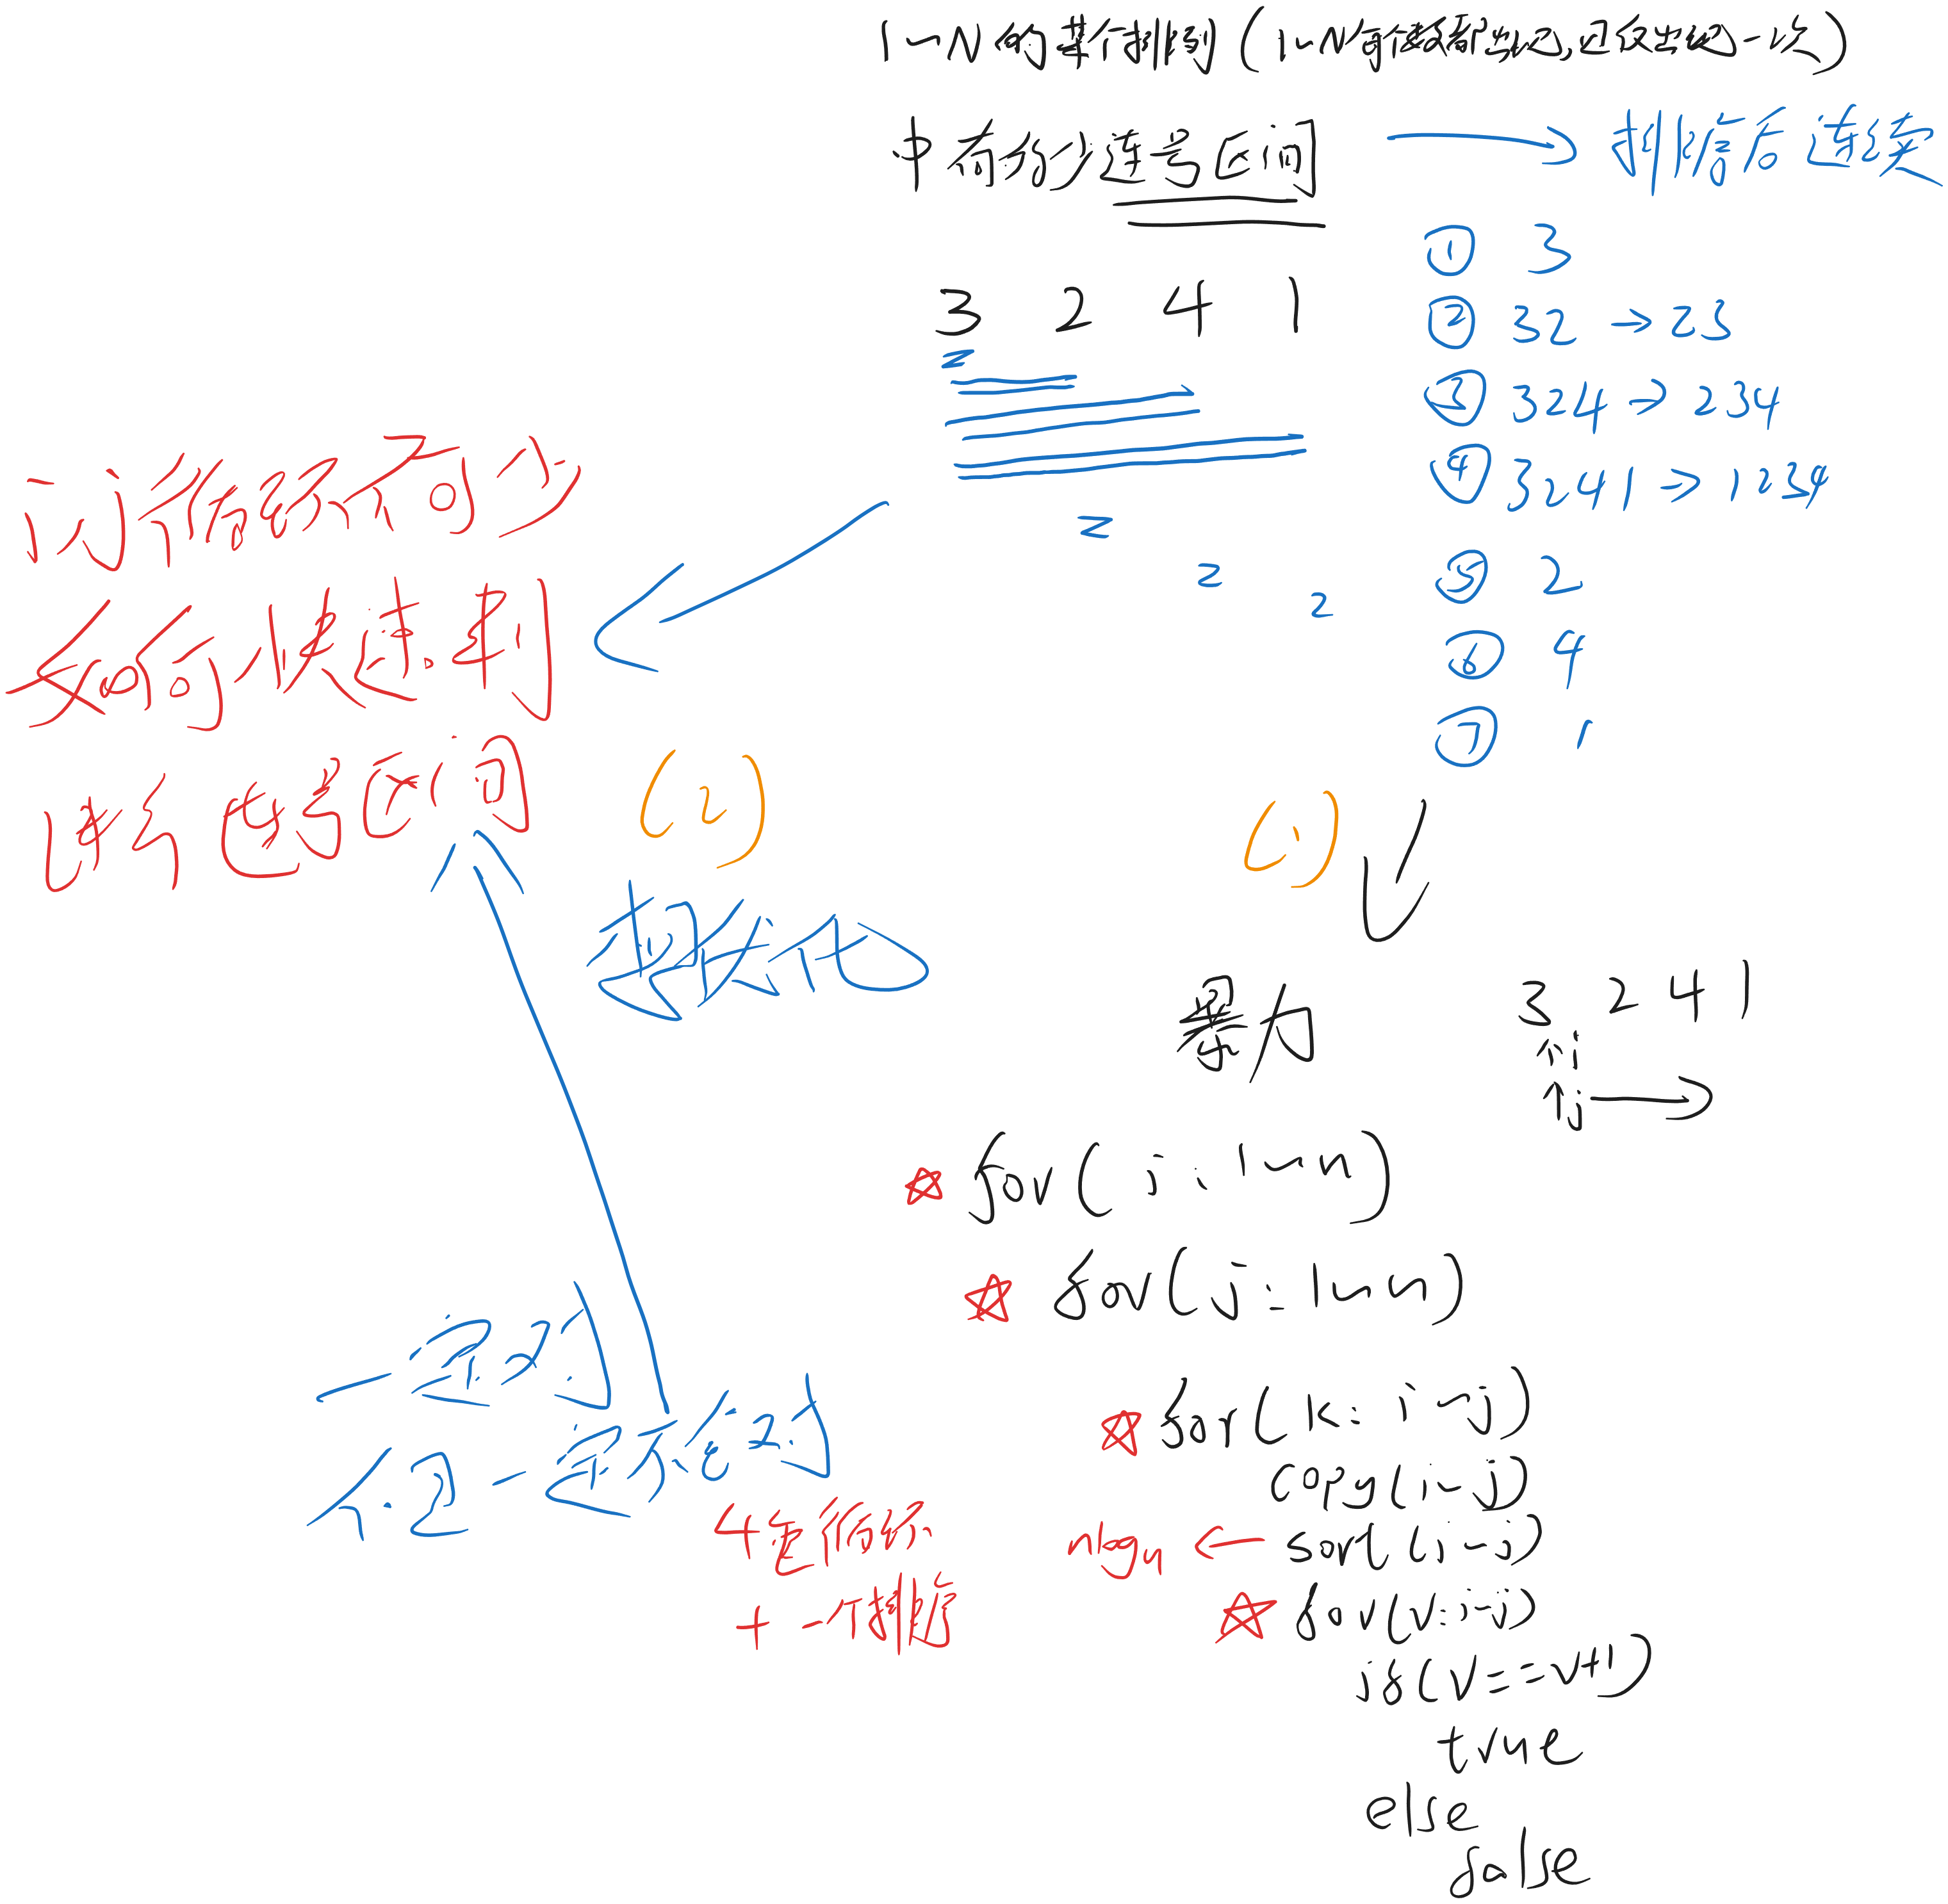 1~N的某个排列(1~N每个数都出现,且仅出现一次)
中有多少连号区间
→ 排信后连续
3 2 4 1
① 3
② 32 → 23
③ 324 → 234
④ 3241 → 1234
⑤ 2
⑥ 4
⑦ 1
遍历必不可少
如何快速判
断连号区间
(2)
(1)
想优化
暴力
3 2 4 1
↑i
↑j →
for(i:1~n)
for(j:1~n)
for(k:i~j)
copy(i~j)
nlgn ← sort(i~j)
for(v:i~j)
if(v==v+1)
true
else
false
一定对
但一定不绝对
4重循环
+一个排序